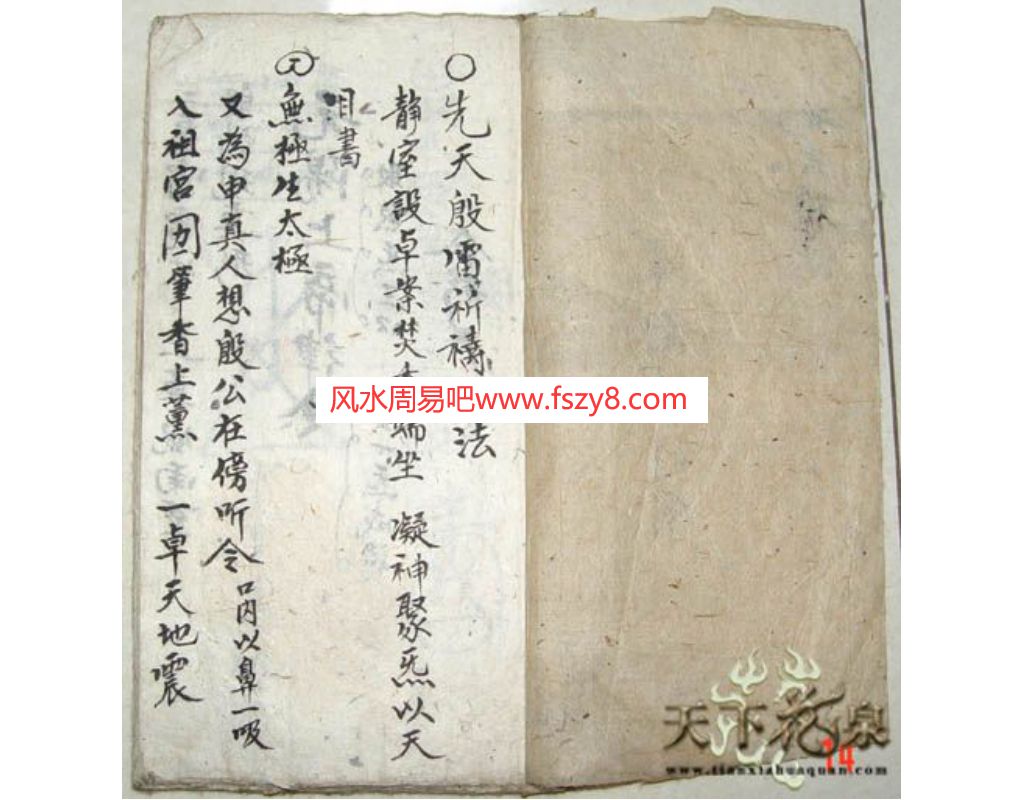 ○先天殷雷祈禱法
静室設卓案焚端坐 凝神聚炁以天
目書
無極生太極
又為申真人想殷公在傍听令 口内以鼻一吸
入祖宮 筆香上薰一卓天地震
风水周易吧www.fszy8.com
天下花泉
14
www.tianxiahuaquan.com